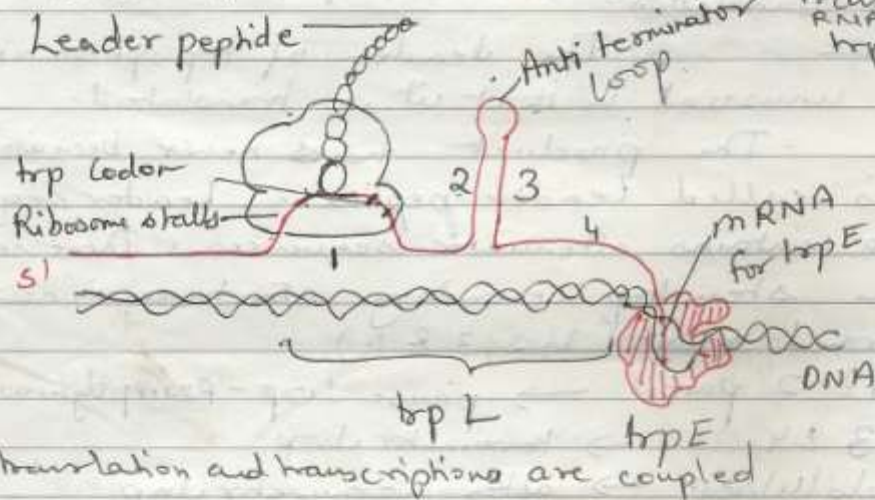 Leader peptide
Anti terminator
loop
RNA
trp
trp codon
Ribosome stalls
2
3
4
1
5'
mRNA
for trpE
DNA
trp L
trpE
translation and transcriptions are coupled